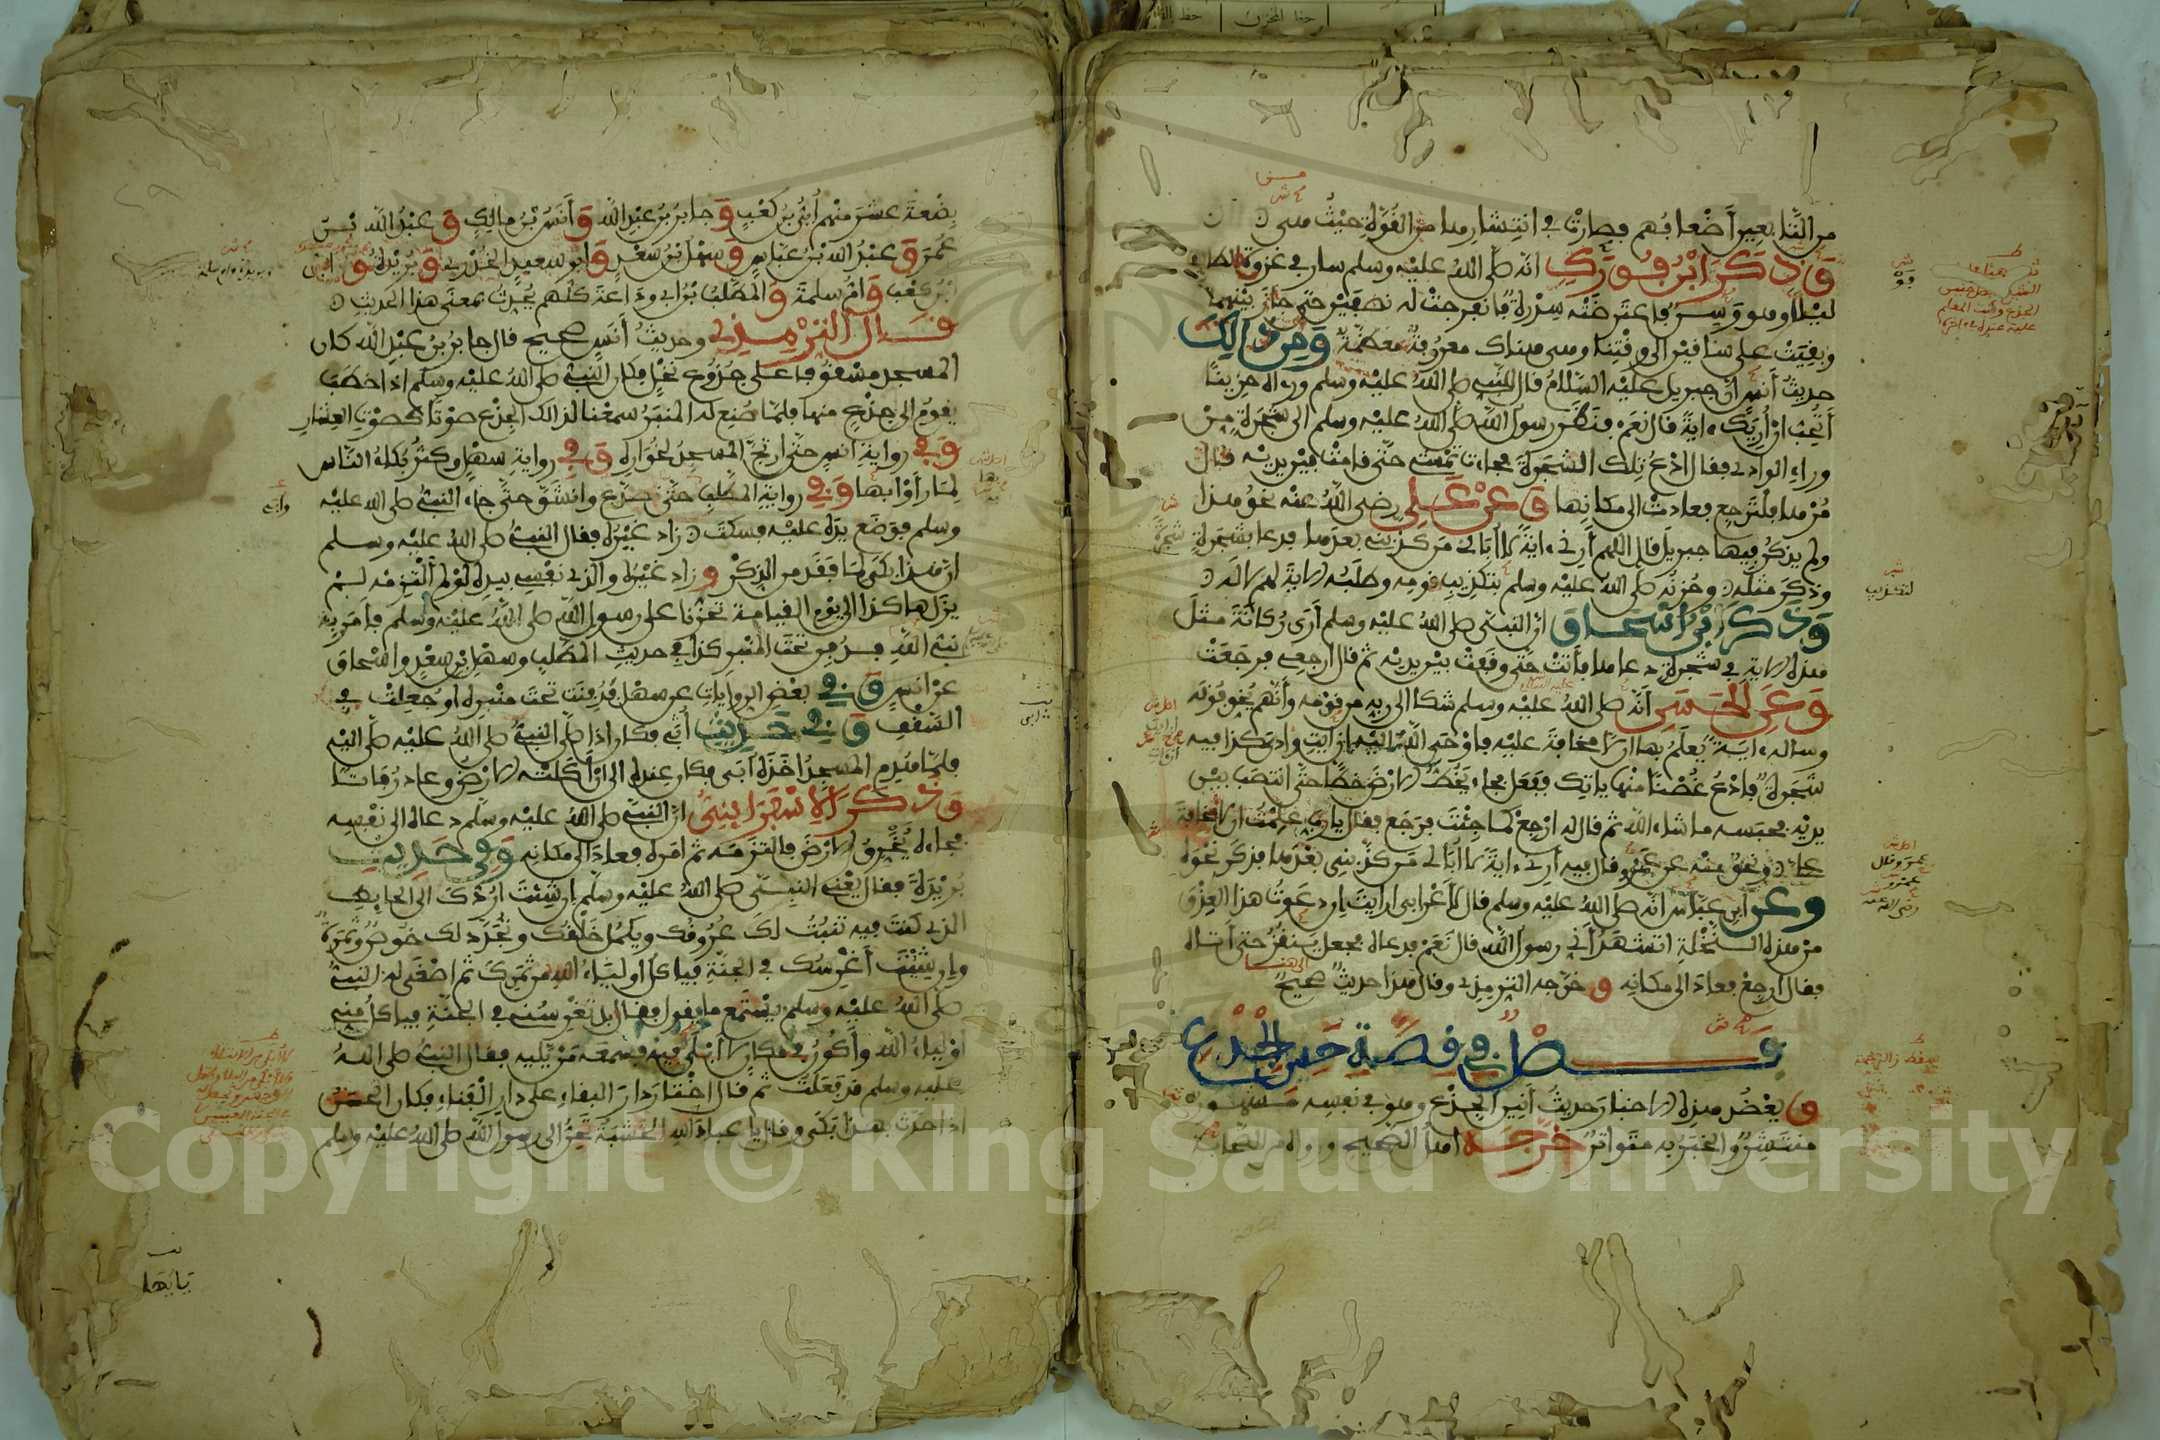 من التابعين أضعافهم فصارت في انتشارها من القوة حيث هي
وذكر ابن فورك انه صلى الله عليه وسلم سار في غزوة الطائف
ليلا وهو وسن فاعترضته سدرة فانفرجت له نصفين حتى جاز بينهما
وبقيت على ساقين الى وقتنا وهي هناك معروفة معظمة ومن ذالك
حديث أنس ان جبريل عليه السلام قال للنبي صلى الله عليه وسلم ورءاه حزينا
أتحب ان أريك ءاية قال نعم فنظر رسول الله صلى الله عليه وسلم الى شجرة من
وراء الوادي فقال ادع تلك الشجرة فجاءت تمشي حتى قامت بين يديه قال
مرها فلترجع فعادت الى مكانها وعن علي رضي الله عنه نحو هذا
ولم يذكر فيها جبريل قال اللهم أرني ءاية لا أبالي من كذبني بعدها فدعا بشجرة
وذكر مثله وحزنه صلى الله عليه وسلم بتكذيب قومه وطلبه الاية لهم لا له
وذكر ابن اسحاق ان النبي صلى الله عليه وسلم أرى ركانة مثل
هذه الاية في شجرة دعاها فأتت حتى وقفت بين يديه ثم قال ارجعي فرجعت
وعن الحسن أنه صلى الله عليه وسلم شكا الى ربه من قومه وأنهم يخوفونه
وساله ءاية يعلم بها ان لا مخافة عليه فاوحى الله اليه ان ايت وادي كذا فيه
شجرة فادع غصنا منها ياتك ففعل فجاء يخط الارض خطا حتى انتصب بين
يديه فحبسه ما شاء الله ثم قال له ارجع كما جئت فرجع فقال يا رب علمت ان لا مخافة
علي ونحو منه عن عمر وقال فيه أرني ءاية لا أبالي من كذبني بعدها فذكر نحوه
وعن ابن عباس انه صلى الله عليه وسلم قال لأعرابي ارايت ان دعوت هذا العذق
من هذه النخلة اتشهد أني رسول الله قال نعم فدعاه فجعل ينقز حتى أتاه
فقال ارجع فعاد الى مكانه وخرجه الترمذي وقال هذا حديث صحيح
فصل في قصة حنين الجذع
ويعضد هذه الاخبار حديث أنين الجذع وهو في نفسه مشهور
منتشر والخبر به متواتر خرجه اهل الصحيح ورواه من الصحابة
بضعة عشر منهم أبي بن كعب وجابر بن عبد الله وأنس بن مالك وعبد الله بن
عمر وعبد الله بن عباس وسهل بن سعد وابو سعيد الخدري وبريدة
وام سلمة والمطلب بن أبي وداعة كلهم يحدث بمعنى هذا الحديث
قال الترمذي وحديث أنس صحيح قال جابر بن عبد الله كان
المسجد مسقوفا على جذوع نخل فكان النبي صلى الله عليه وسلم اذا خطب
يقوم الى جذع منها فلما صنع له المنبر سمعنا لذالك الجذع صوتا كصوت العشار
وفي رواية أنس حتى ارتج المسجد لخواره وفي رواية سهل وكثر بكاء الناس
لما رأوا بها وفي رواية المطلب حتى تصدع وانشق حتى جاء النبي صلى الله عليه
وسلم فوضع يده عليه فسكت زاد غيره فقال النبي صلى الله عليه وسلم
ان هذا بكى لما فقد من الذكر وزاد غيره والذي نفسي بيده لو لم ألتزمه لم
يزل هاكذا الى يوم القيامة تحزنا على رسول الله صلى الله عليه وسلم فامر به
نبي الله فدفن تحت المنبر كذا في حديث المطلب وسهل بن سعد واسحاق
عن أنس وفي بعض الروايات عن سهل فدفنت تحت منبره او جعلت في
السقف وفي حديث أبي فكان اذا صلى النبي صلى الله عليه وسلم صلى اليه
فلما هدم المسجد اخذه أبي فكان عنده الى ان أكلته الارض وعاد رفاتا
وذكر الاسفرايني ان النبي صلى الله عليه وسلم دعاه الى نفسه
فجاءه يخرق الارض فالتزمه ثم امره فعاد الى مكانه وفي حديث
بريدة فقال يعني النبي صلى الله عليه وسلم ان شئت اردك الى الحايط
الذي كنت فيه تنبت لك عروقك ويكمل خلقك ويجدد لك خوص وثمرة
وان شئت أغرسك في الجنة فياكل اولياء الله من ثمرك ثم اصغى له النبي
صلى الله عليه وسلم يستمع ما يقول فقال بل تغرسني في الجنة فياكل مني
اولياء الله وأكون في مكان لا ابلى فيه فسمعه من يليه فقال النبي صلى الله
عليه وسلم قد فعلت ثم قال اختار دار البقاء على دار الفناء فكان الحسن
اذا حدث بهذا بكى وقال يا عباد الله الخشبة تحن الى رسول الله صلى الله عليه وسلم
يايها
Copyright © King Saud University